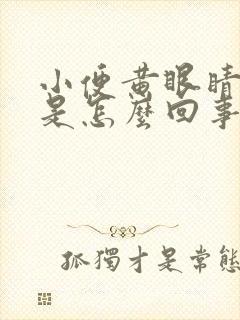 小便黄眼睛
是怎麼回事
孤獨才是常態